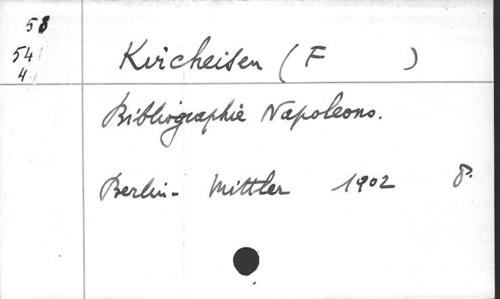 58
54
4
Kircheisen (F )
Bibliographie Napoleons.
Berlin- Mittler 1902 8°.